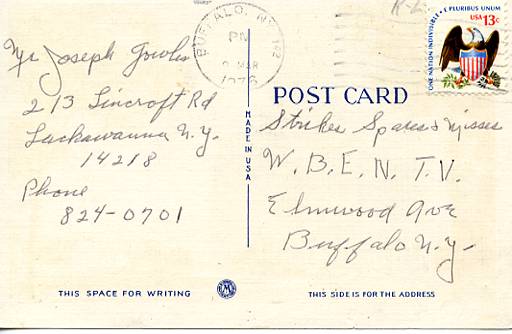 Mr Joseph
213 Lincroft Rd
Lackawanna N.Y.
14218
Phone
824-0701
MADE IN USA
THIS SPACE FOR WRITING
BUFFALO, NY 142
PM
MAR
1976
ONE NATION INDIVISIBLE • E PLURIBUS UNUM
USA 13c
POST CARD
Strikes Spares & Misses
W.B.E.N. T.V.
Elmwood Ave
Buffalo N.Y.
THIS SIDE IS FOR THE ADDRESS